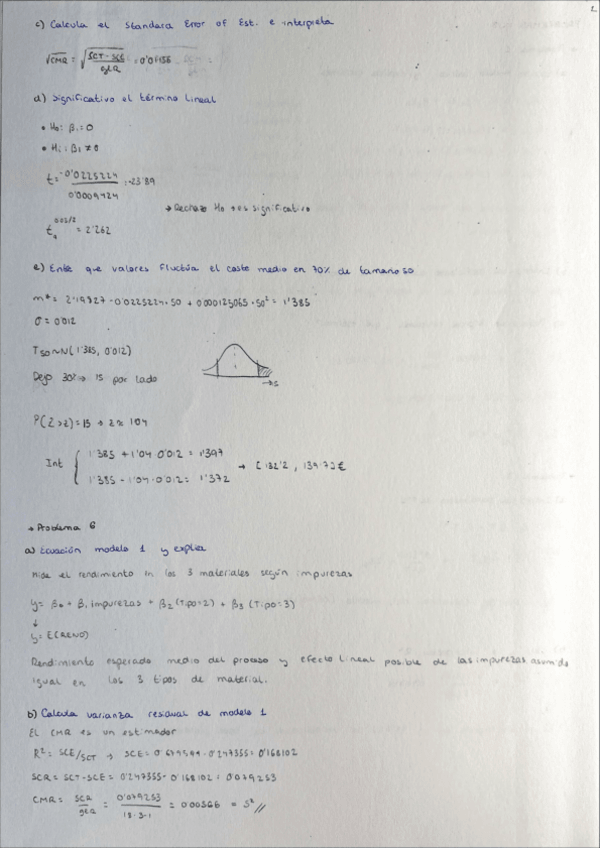 2.
c) Calcula el Standard Error of Est. e interpreta
√CMR = √(SCT-SCE / gl R) = 0'01156
d) Significativo el término lineal
• H₀: β₁ = 0
• H₁: β₁ ≠ 0
t = -0'0225224 / 0'0009424 = -23'89
→ Rechazo H₀ → es significativo
t 0.05/2 = 2'262
e) Entre que valores fluctúa el coste medio en 70% de tamaño 50
m* = 2'19327 - 0'0225224 · 50 + 0'000125065 · 50² = 1'385
σ = 0'012
T50 ~ N(1'385, 0'012)
Dejo 30% → 15 por lado
P(Z>z) = 15 → z ≈ 1'04
1'385 + 1'04 · 0'012 = 1'397
Int { → [132'2, 139'7] €
1'385 - 1'04 · 0'012 = 1'372
→ Problema 6
a) Ecuación modelo 1 y explica
Mide el rendimiento in los 3 materiales según impurezas
y = β₀ + β₁ impurezas + β₂ (Tipo=2) + β₃ (Tipo=3)
↓
y = E(REND)
Rendimiento esperado medio del proceso y efecto lineal posible de las impurezas asumido
igual en los 3 tipos de material.
b) Calcula varianza residual de modelo 1
El CMR es un estimador
R² = SCE/SCT → SCE = 0'679599 · 0'247355 = 0'168102
SCR = SCT - SCE = 0'247355 - 0'168102 = 0'079253
CMR = SCR / glR = 0'079253 / 18-3-1 = 0'00566 = S² //